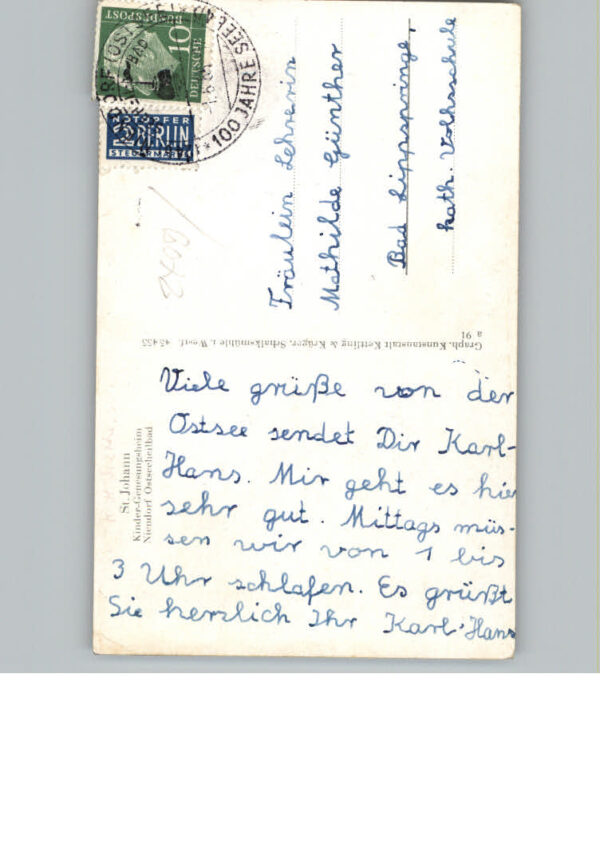 DEUTSCHE
BUNDESPOST
10
NOTOPFER
2 BERLIN
STEUERMARKE
100 JAHRE SEE
Fräulein Lehrerin
Mathilde Günther
Bad Lippspringe,
kath. Volksschule
Graph. Kunstanstalt Kettling & Krüger, Schalksmühle i. Westf.
a 91
St. Johann
Kinder-Genesungsheim
Niendorf Ostseeheilbad
Viele grüße von der
Ostsee sendet Dir Karl-
Hans. Mir geht es hie
sehr gut. Mittags müs-
sen wir von 1 bis
3 Uhr schlafen. Es grüßt
Sie herzlich Ihr Karl-Hans